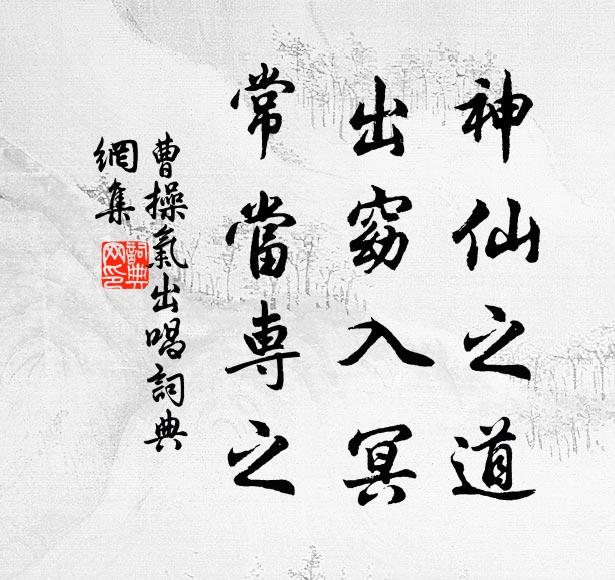 神仙之道
出窈入冥
常當専之
曹操氣出唱詞典
網集
詞典
网印